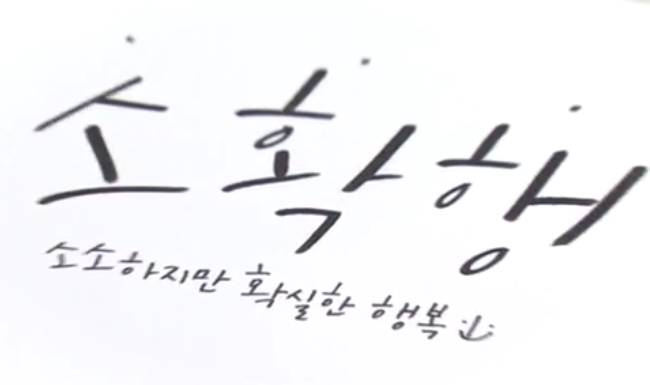 소확행
소소하지만 확실한 행복